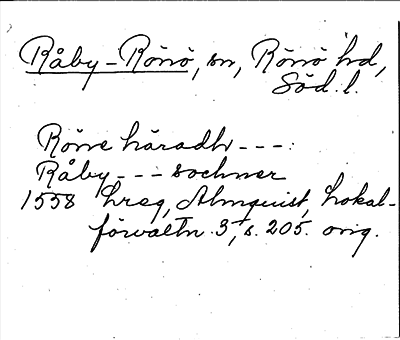 Råby-Rönö, sn, Rönö hd,
Söd. l.
Röne häradh ---:
Råby --- sochner
1558 hreg, Almquist, Lokal-
förvaltn. 3, s. 205. orig.